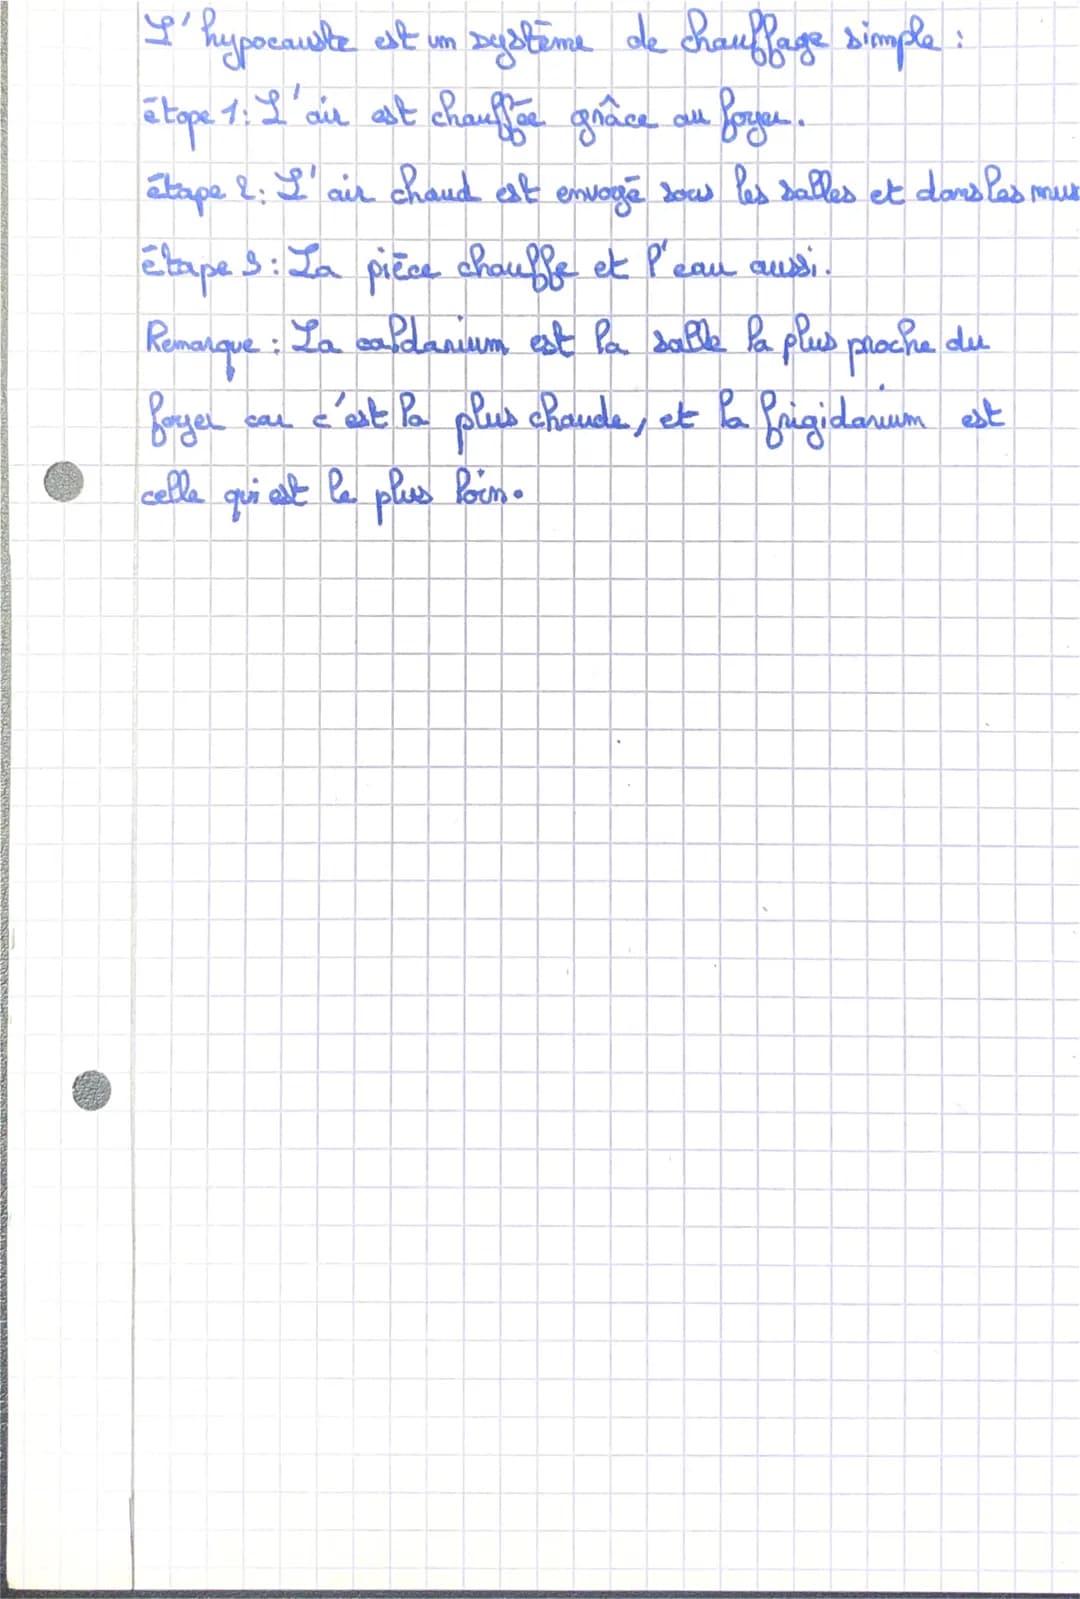 L'hypocauste est un système de chauffage simple :
étape 1: L'air est chauffée grâce au foyer.
étape 2: L'air chaud est envoyé sous les salles et dans les murs
étape 3: La pièce chauffe et l'eau aussi.
Remarque : La caldarium est la salle la plus proche du
foyer car c'est la plus chaude, et la frigidarium est
celle qui est le plus loin.